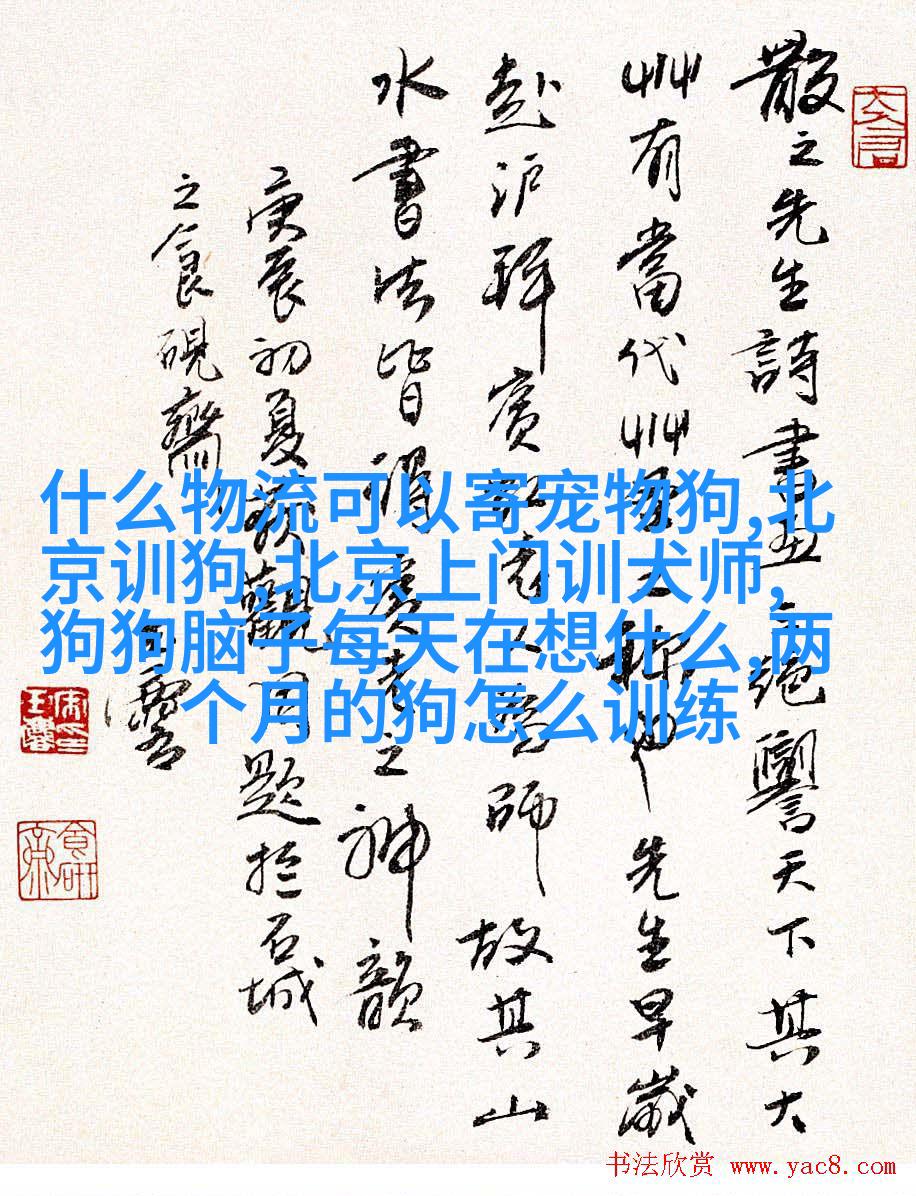 散之先生詩書畫三絕譽天下其大
艸有當代艸聖之稱也先生早歲
赴沪拜賓虹老人為師故其山
水書法皆得賓老之神韻
庚辰初夏敬觀因題於石城
之食硯齋
什么物流可以寄宠物狗,北
京训狗,北京上门训犬师,
狗狗脑子每天在想什么,两
个月的狗怎么训练
书法欣赏 www.yac8.com